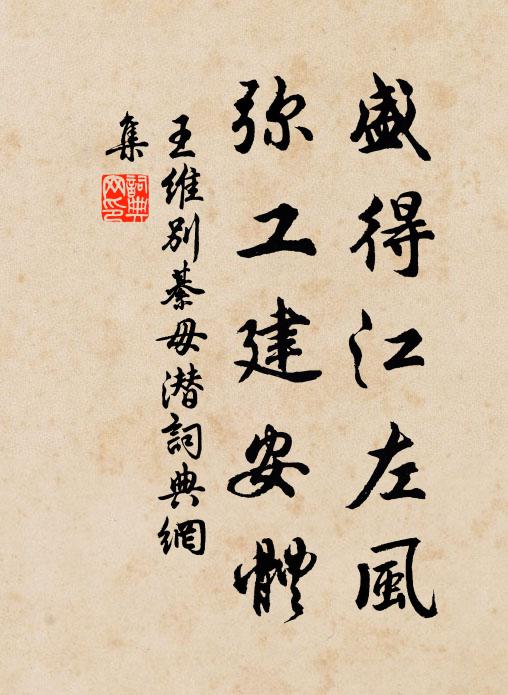 盛得江左風
弥工建安體
王維别綦毋潜詞典網
集
詞典網印